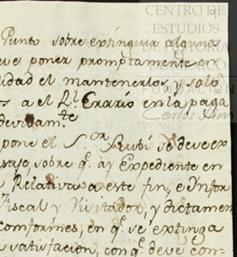 CENTRO DE
ESTUDIOS
Punto sobre extinguir algunas
que poner promptamente en
lidad el mantenerlos, y solo
os a el Rl. Erario en la paga
devidamte.
pone el Sor. Rubí se deve ex
sobre q. aý Expediente en
Relativa a este fin, e Infor
Fiscal y Visitador, y dictamen
conformes, en q. se extinga
satisfacion, con q. deve con-